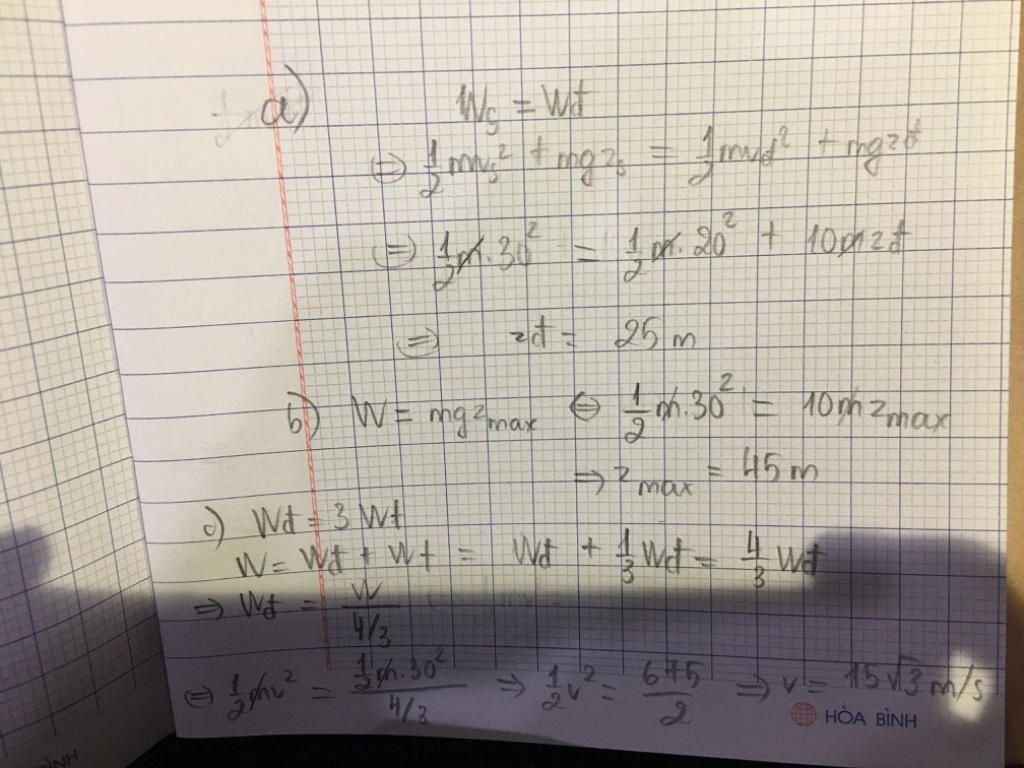 a) Ws = Wđ
⇒ 1/2 mvs² + mgzs = 1/2 mvđ² + mgzđ
⇒ 1/2 m.30² = 1/2 m.20² + 10mzđ
⇒ zđ = 25 m
b) W = mgzmax ⇔ 1/2 m.30² = 10mzmax
⇒ zmax = 45 m
c) Wđ = 3 Wt
W = Wđ + Wt = Wđ + 1/3 Wđ = 4/3 Wđ
⇒ Wđ = W / 4/3
⇔ 1/2 mv² = 1/2 m.30² / 4/3 ⇒ 1/2 v² = 675/2 ⇒ v = 15√3 m/s
HÒA BÌNH